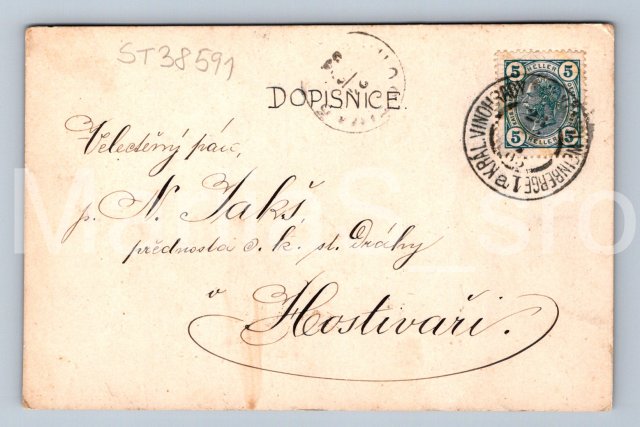 ST38591
DOPISNICE.
5 HELLER 5
5 HELLER 5
KRÁL. VINOHRADY
WEINBERGE 1a
Velectěný pán,
p. N. Jakš,
přednosta c. k. st. Dráhy
v
Hostivaři.